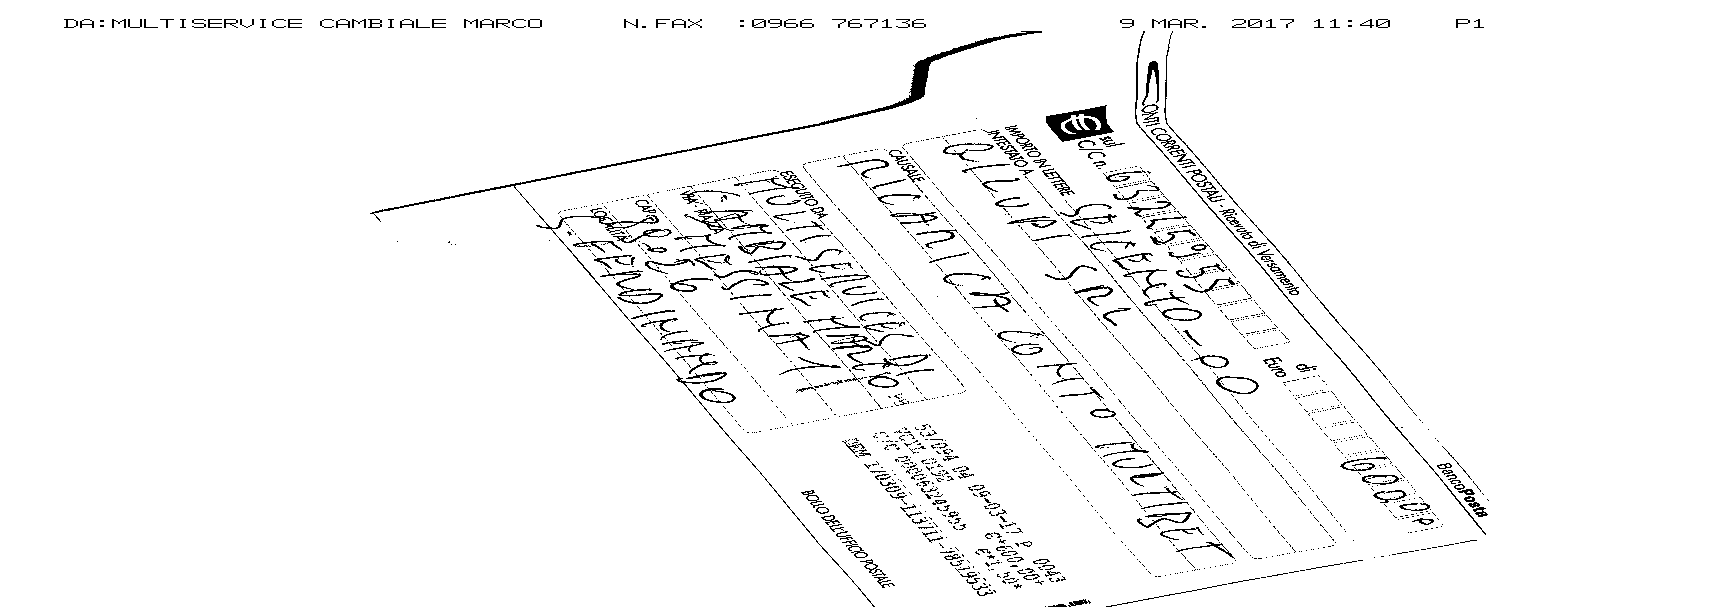 DA:MULTISERVICE CAMBIALE MARCO N.FAX :0966 767136 9 MAR. 2017 11:40 P1
CONTI CORRENTI POSTALI - Ricevuta di Versamento
BancoPosta
sul
C/C n. 63245955
di
Euro 60000
IMPORTO IN LETTERE SEICENTO-00
INTESTATO A
QILUPI SRL
CAUSALE
RICARICA CONTO MULTIBET
ESEGUITO DA
MULTISERVICES DI
CAMBIALE MARCO
VIA - PIAZZA
MESSINA 1
CAP
LOCALITÀ
FERDINANDO
53/094 04 09-03-17 P 0043
VCYL 0192 €*600,00*
C/C 000063245955 €*1,50*
BOLLO DELL'UFFICIO POSTALE